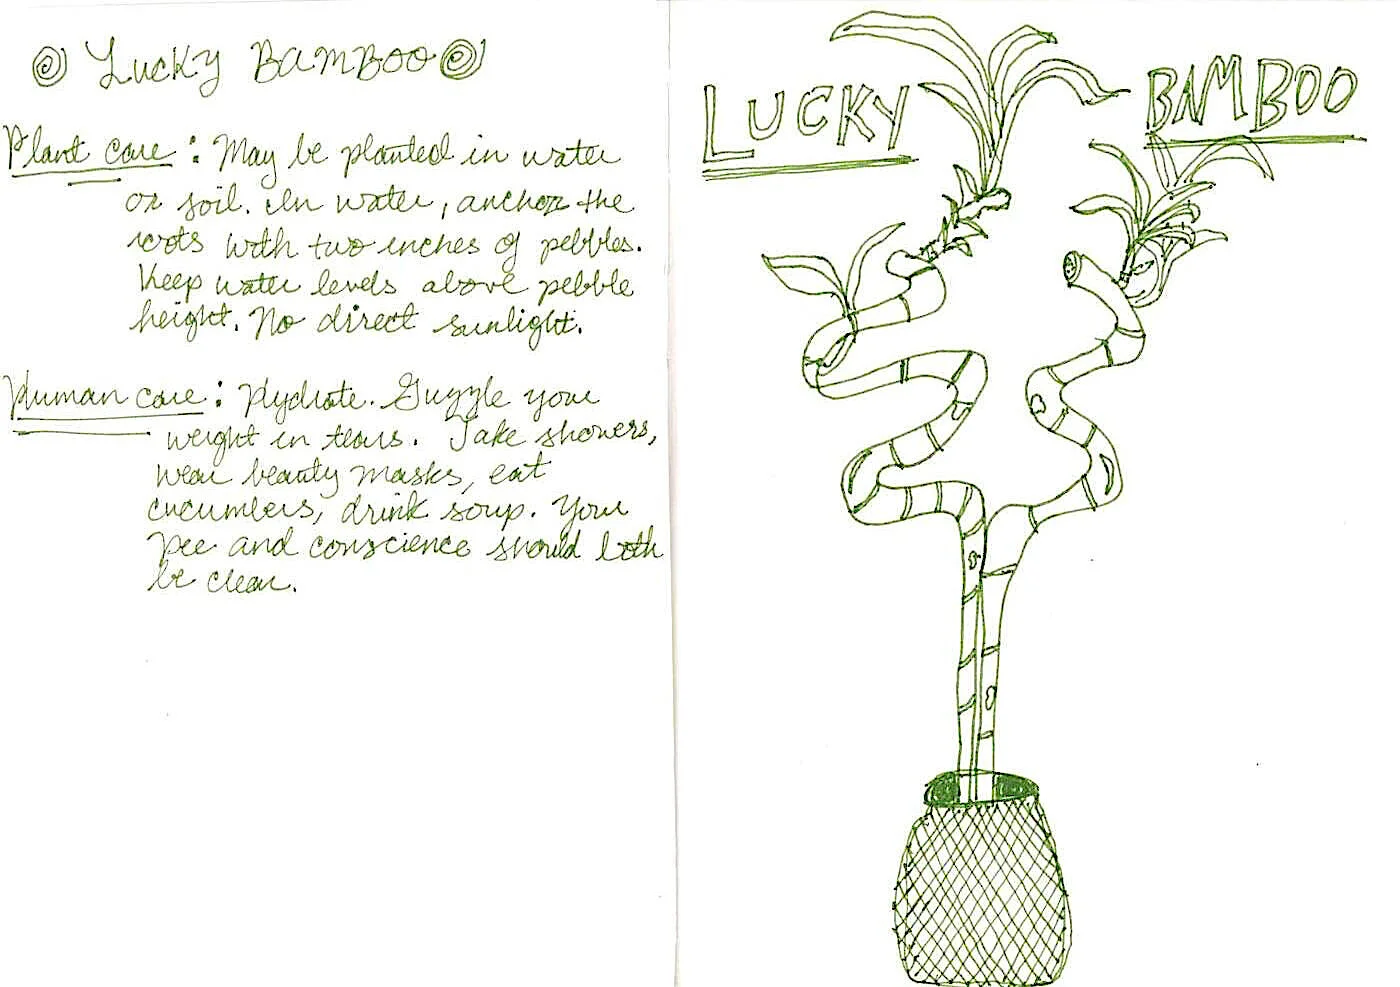 Lucky BAMBOO
Plant care: May be planted in water
or soil. In water, anchor the
roots with two inches of pebbles.
Keep water levels above pebble
height. No direct sunlight.
Human care: Hydrate. Guzzle your
weight in tears. Take showers,
wear beauty masks, eat
cucumbers, drink soup. Your
pee and conscience should both
be clear.
LUCKY BAMBOO